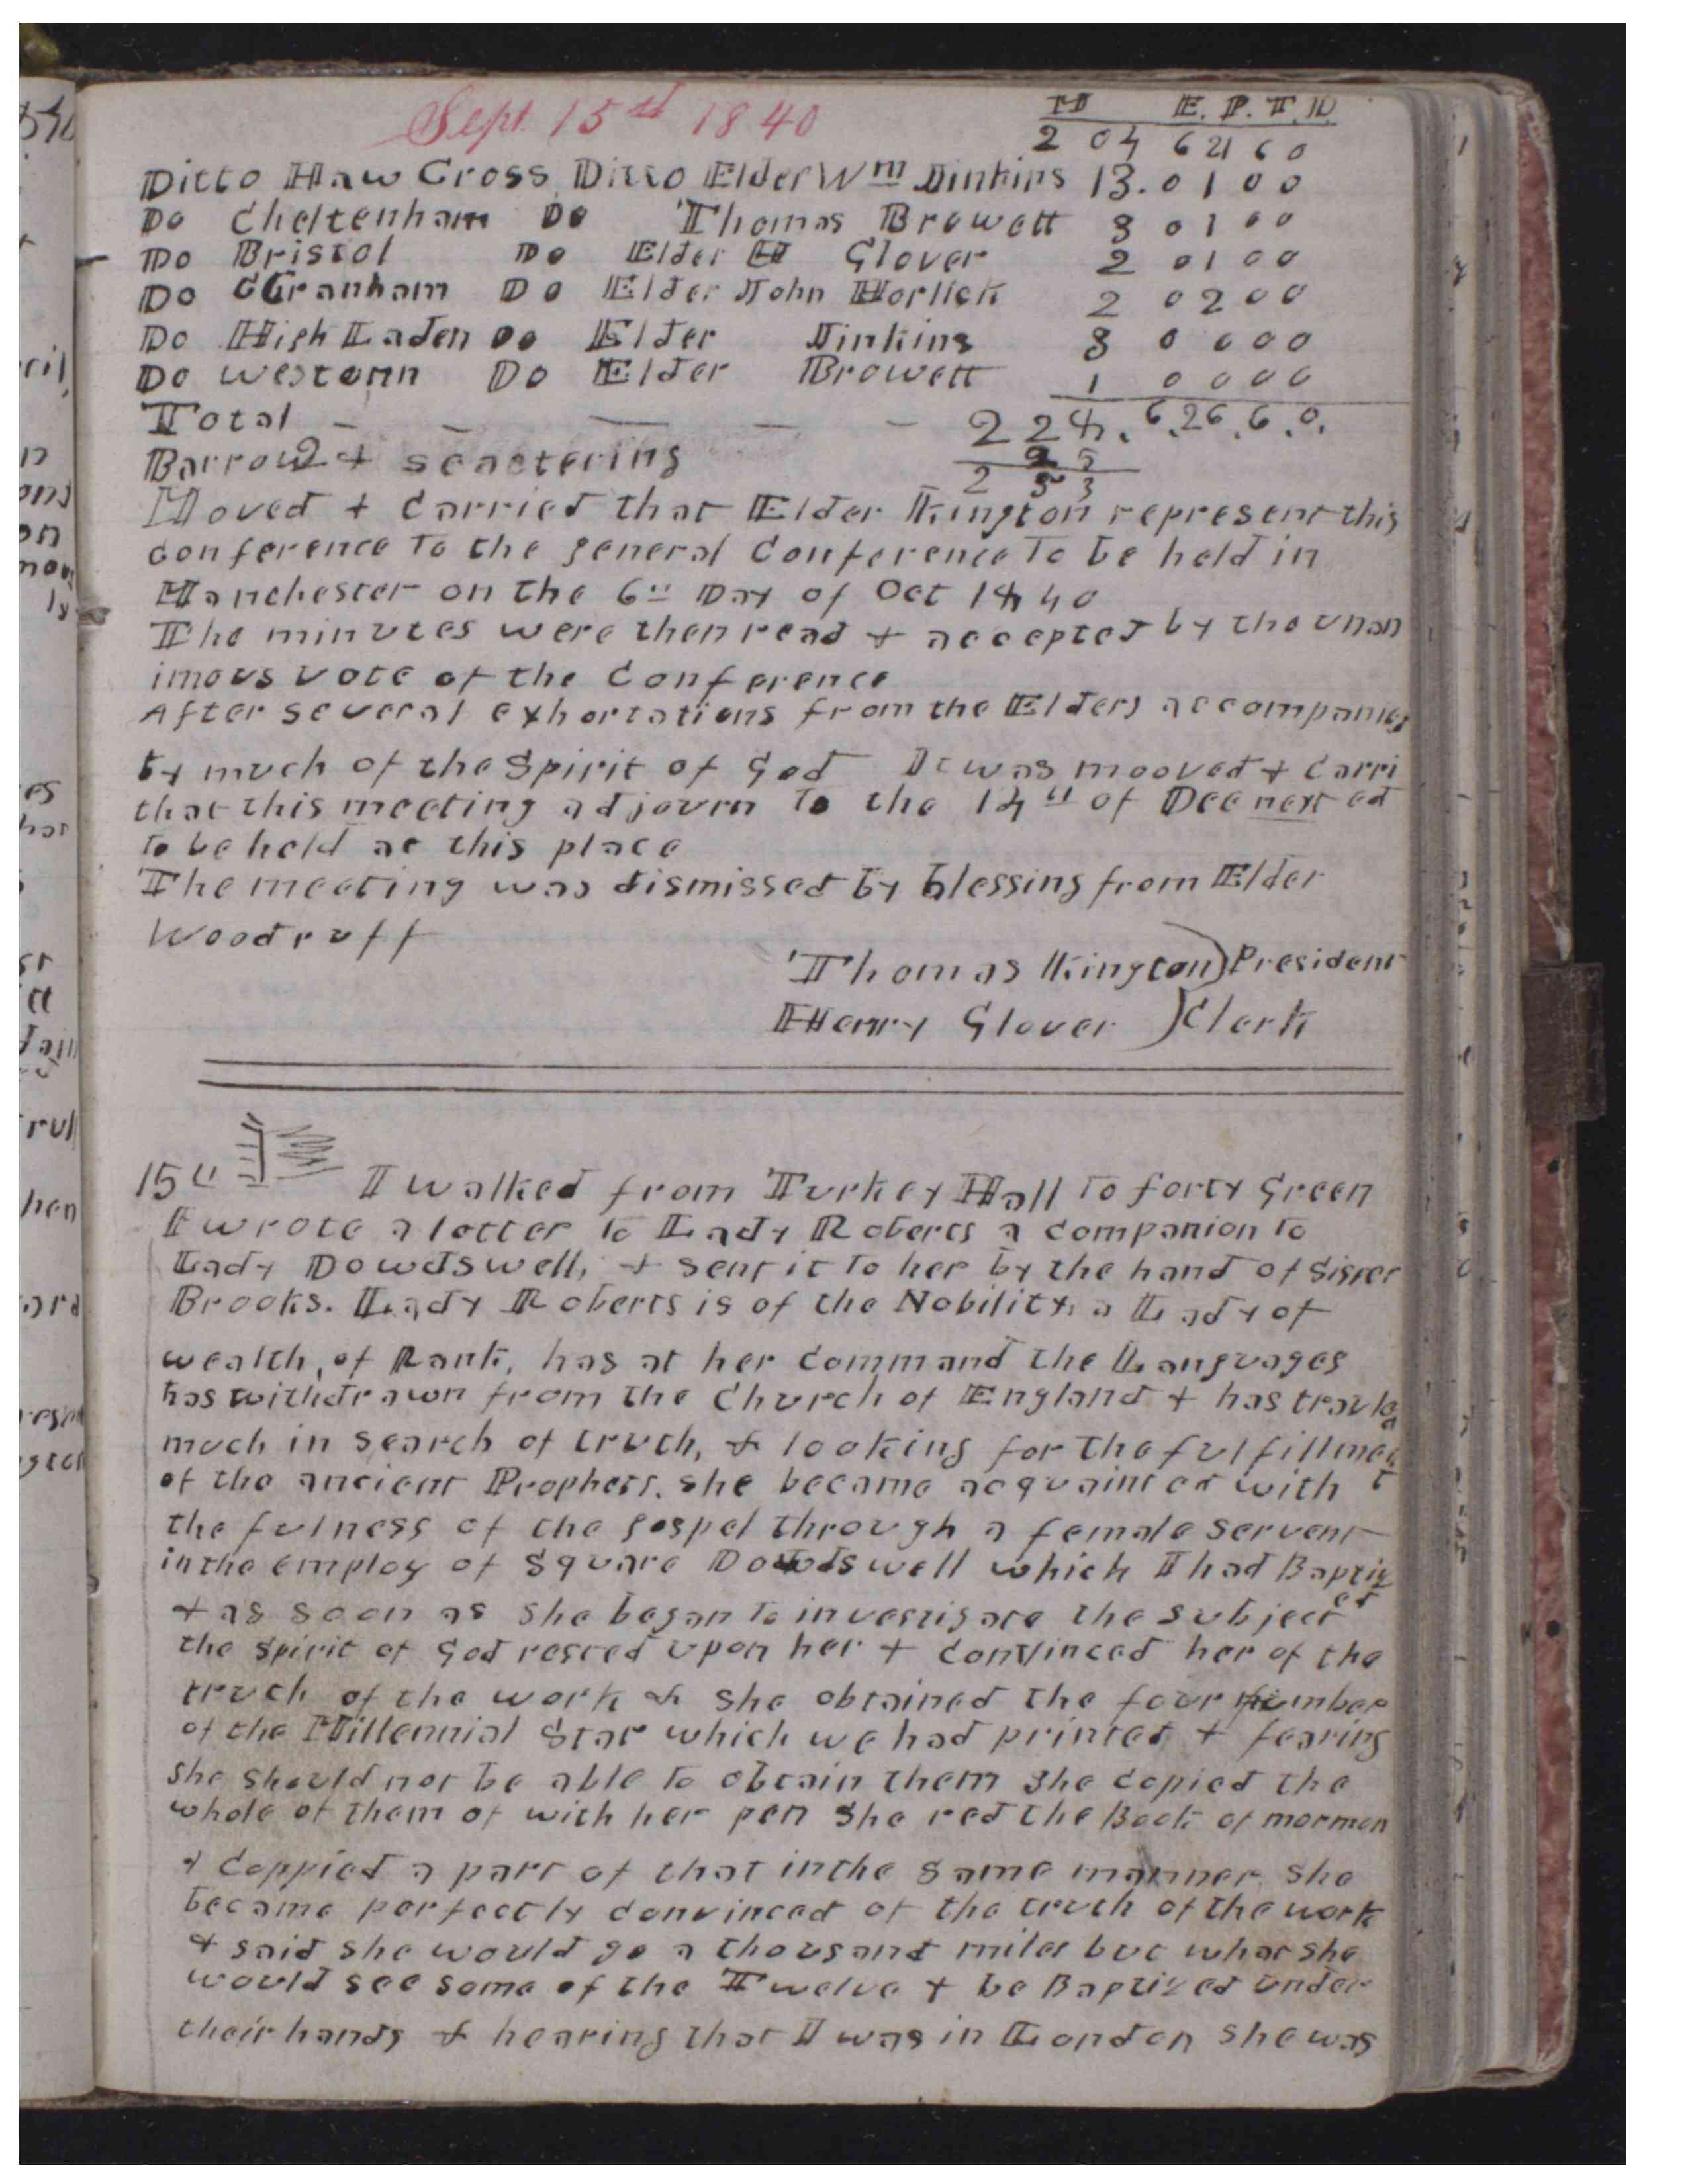 Sept. 15th 1840
M E. P. T. D.
204 6 21 6 0
Ditto Haw Cross Ditto Elder Wm Jinkins 13. 0 1 0 0
Do Cheltenham Do Thomas Browett 8 0 1 0 0
Do Bristol Do Elder H Glover 2 0 1 0 0
Do Granham Do Elder John Horlick 2 0 2 0 0
Do High Laden Do Elder Jinkins 8 0 0 0 0
Do Westonn Do Elder Browett 1 0 0 0 0
Total 224. 6. 26. 6. 0.
Barrow 2 + scactering
253
Moved + Carried that Elder Kington represent this
Conference to the general Conference to be held in
Manchester on the 6th Day of Oct 1840
The minutes were then read + accepted by the unan
imous vote of the Conference
After several exhortations from the Elders accompanied
by much of the Spirit of God It was mooved + Carri
that this meeting adjourn to the 14th of Dec next ed
to be held at this place
The meeting was dismissed by blessing from Elder
Woodruff
Thomas Kington) President
Henry Glover ) Clerk
15th I walked from Turkey Hall to forty Green
I wrote a letter to Lady Roberts a companion to
Lady Dowdswell, + sent it to her by the hand of Sister
Brooks. Lady Roberts is of the Nobility, a Lady of
wealth, of Rank, has at her command the Languages
has withdrawn from the Church of England + has travled
much in search of truth, & looking for the fulfillment
of the ancient Prophets. She became acquainted with
the fulness of the gospel through a female servent
in the employ of Square Dowdswell which I had Baptiz
ed
+ as soon as she began to investigate the subject
the Spirit of God rested upon her + convinced her of the
truth of the work & she obtained the four number
of the Millennial Star which we had printed + fearing
she should not be able to obtain them she copied the
whole of them of with her pen She red the Book of mormon
& coppied a part of that in the same manner. She
became perfectly convinced of the truth of the work
& said she would go a thousand miles but what she
would see some of the Twelve + be Baptized under
their hands & hearing that I was in London she was